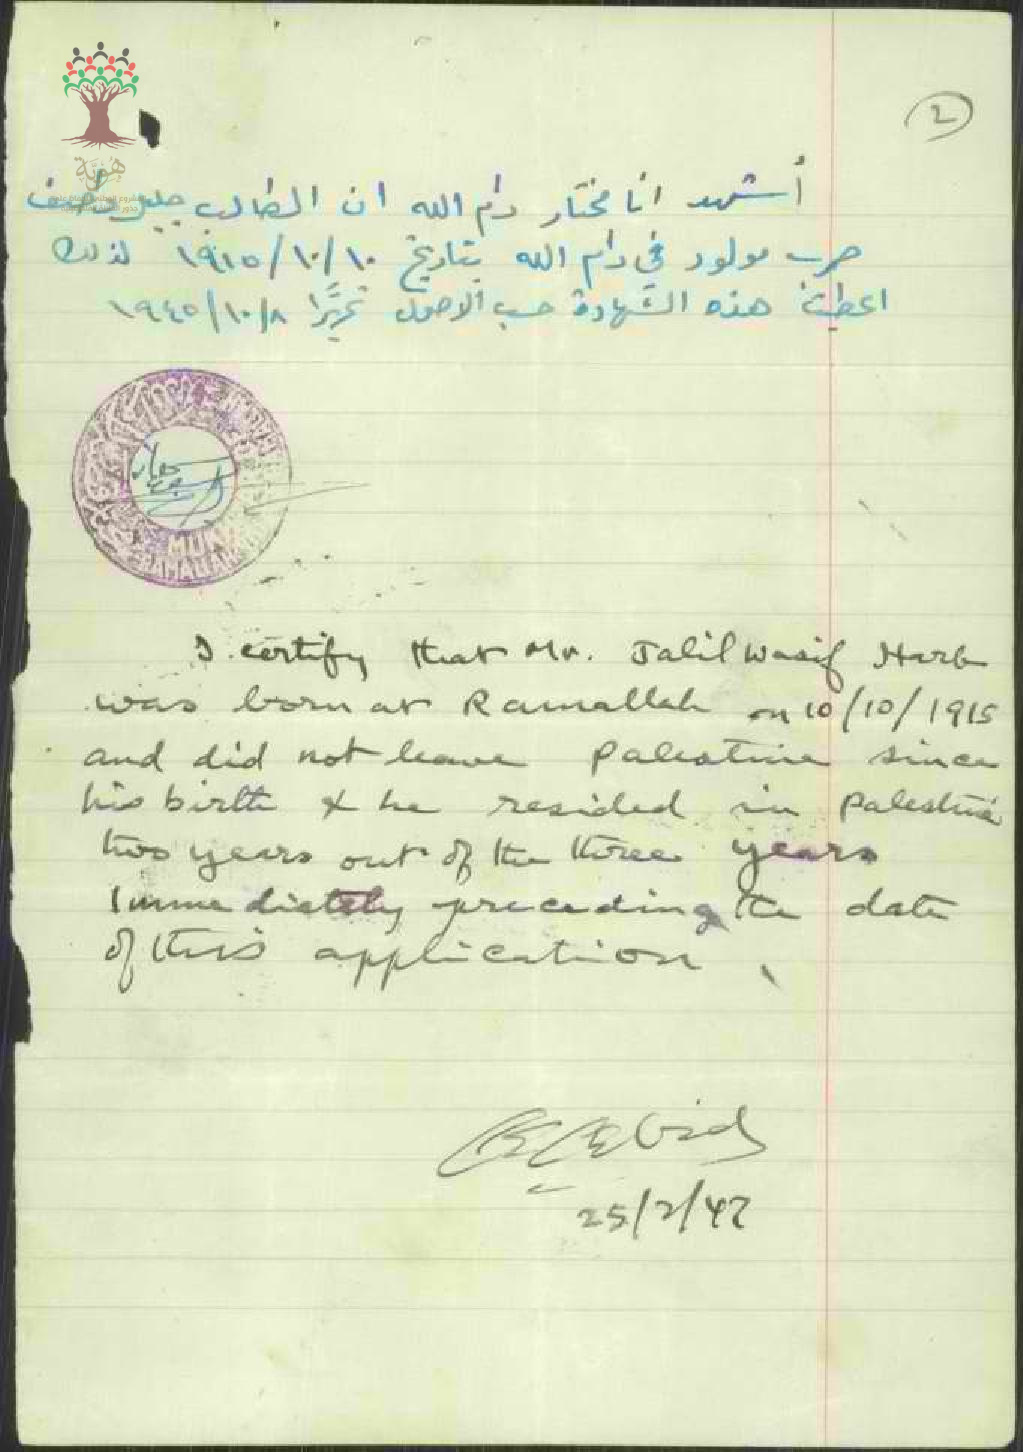 2
هَوِيَّة
أشهد انا مختار رام الله ان الطالب جليل وصيف
حرب مولود في رام الله بتاريخ ١٠/١٠/١٩١٥ لذلك
اعطيت هذه الشهادة حسب الاصول تحريرًا ٨/١٠/١٩٤٥
MUK
RAMALLAH
I certify that Mr. Jalil Wasif Harb
was born at Ramallah on 10/10/1915
and did not leave Palestine since
his birth & he resided in Palestine
two years out of the three years
Immedietely preceding the date
of this application
25/2/47